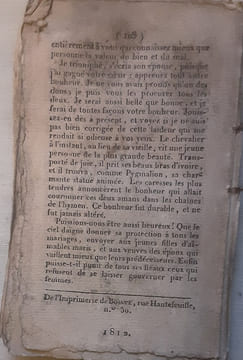 ( 108 )
entièrement à vous qui connaissez mieux que
personne la valeur du bien et du mal.
Je triomphe, s'écria son épouse, puisque
j'ai gagné votre cœur ; apprenez tout votre
bonheur. Je ne vous avais promis qu'un des
dons ; je puis vous les procurer tous les
deux. Je serai aussi belle que bonne, et je
ferai de toutes façons votre bonheur. Jouis-
sez-en dès à présent, et voyez si je ne suis
pas bien corrigée de cette laideur qui me
rendait si odieuse à vos yeux. Le chevalier
à l'instant, au lieu de sa vieille, vit une jeune
personne de la plus grande beauté. Trans-
porté de joie, il prit ses beaux bras d'ivoire,
et il trouva, comme Pygmalion, sa char-
mante statue animée. Les caresses les plus
tendres annoncèrent le bonheur qui allait
couronner ces deux amans dans les chaînes
de l'hymen. Ce bonheur fut durable, et ne
fut jamais altéré.
Puissions-nous être aussi heureux ! Que le
ciel daigne donner sa protection à tous les
mariages, envoyer aux jeunes filles d'ai-
mables maris, et aux veuves des époux qui
vaillent mieux que leurs prédécesseurs. Enfin
puisse-t-il punir de tous ses fléaux ceux qui
refusent de se laisser gouverner par les
femmes.
De l'Imprimerie de , rue Hautefeuille,
n.° 30.
1812.